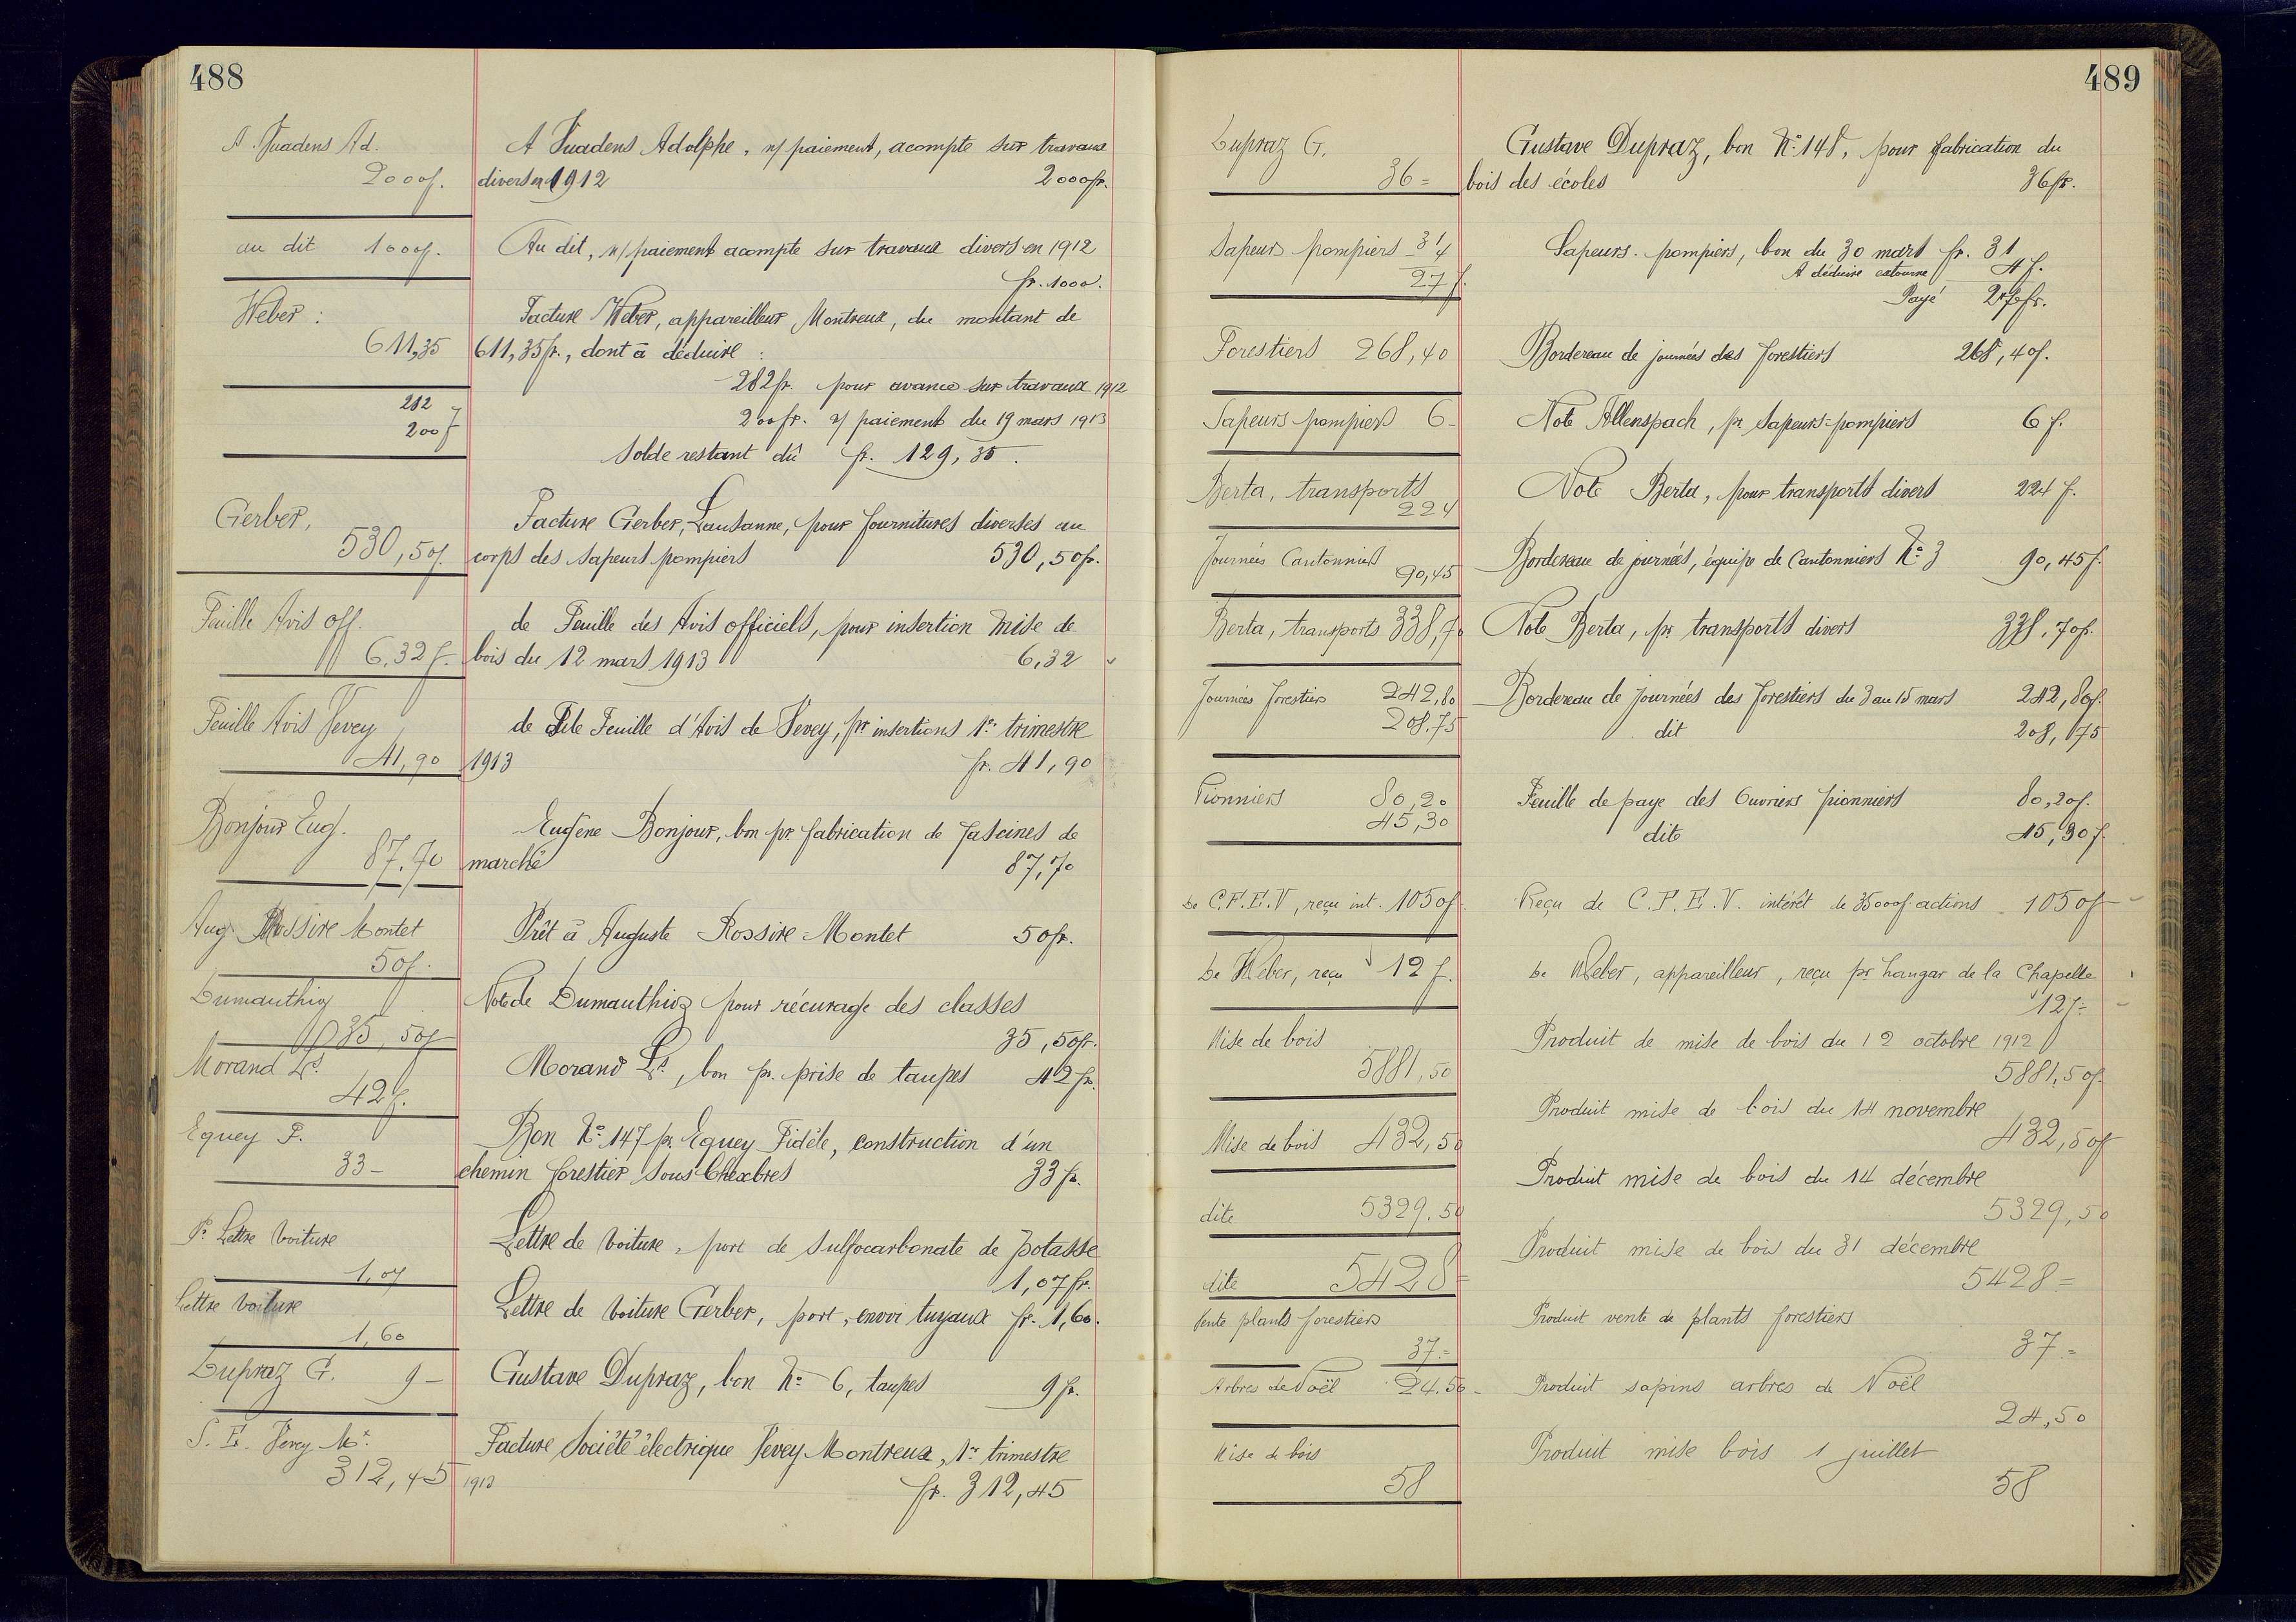 488
A Vuadens Ad.
2000f.
A Vuadens Adolphe, n/ paiement, acompte sur travaux
divers en 1912 2000fr.
au dit 1000f.
Au dit, n/ paiement acompte sur travaux divers en 1912
fr. 1000.
Weber :
611,35
Facture Weber, appareilleur Montreux, du montant de
611,35fr., dont à déduire :
282
200 f
282fr. pour avance sur travaux 1912
200fr. n/ paiement du 19 mars 1913
Solde restant dû fr. 129,35.
Gerber,
530,50f.
Facture Gerber, Lausanne, pour fournitures diverses au
corps des sapeurs pompiers 530,50fr.
Feuille Avis off.
6,32 f.
de Feuille des Avis officiels, pour insertion mise de
bois du 12 mars 1913 6,32
Feuille Avis Vevey
41,90
de Feuille d'Avis de Vevey, pr insertions 1er trimestre
1913 fr. 41,90
Bonjour Eug.
87.70
Eugène Bonjour, bon pr. fabrication de fascines de
marché 87,70
Aug. Rossire Montet
50f.
Prêt à Auguste Rossire-Montet 50fr.
Dumauthioz
35,50f
Note de Dumauthioz pour récurage des classes
35,50fr.
Morand Ls.
42f.
Morand Ls, bon pr. prise de taupes 42fr.
Equey F.
33-
Bon No 147 pr Equey Fidèle, construction d'un
chemin forestier sous Chexbres 33fr.
Pr Lettre voiture
1,07
Lettre de voiture, port de sulfocarbonate de potasse
1,07fr.
Lettre voiture
1,60
Lettre de voiture Gerber, port, envoi tuyaux fr. 1,60.
Dupraz G. 9 -
Gustave Dupraz, bon No 6, taupes 9fr.
S. E. Vevey Mx.
312,45
Facture Société électrique Vevey Montreux, 1er trimestre
1913
fr. 312,45
489
Dupraz G.
36 =
Gustave Dupraz, bon No 148, pour fabrication du
bois des écoles 36fr.
Sapeurs pompiers 31
4
27 f.
Sapeurs-pompiers, bon du 30 mars fr. 31
A déduire 4 f.
Payé 27fr.
Forestiers 268,40
Bordereau de journées des forestiers 268,40f.
Sapeurs pompiers 6-
Note Allenspach, pr Sapeurs-pompiers 6 f.
Berta, transports
224
Note Berta, pour transports divers 224 f.
Journées Cantonniers
90,45
Bordereau de journées, équipe de Cantonniers No 3 90,45f.
Berta, transports 338,70
Note Berta, pr. transports divers 338,70f.
Journées forestiers 242,80
208.75
Bordereau de journées des forestiers du 3 au 15 mars 242,80f.
dit 208,75
Pionniers 80,20
45,30
Feuille de paye des Ouvriers pionniers 80,20f.
dite 45,30f.
De C.F.E.V, reçu int. 1050f.
Reçu de C.F.E.V. intérêt de 35000f actions - 1050f
De Weber, reçu 12 f.
De Weber, appareilleur, reçu pr. hangar de la Chapelle
12f=
Mise de bois
5881,50
Produit de mise de bois du 12 octobre 1912
5881,50f.
Mise de bois 432,50
Produit mise de bois du 14 novembre
432,50f
dite 5329.50
Produit mise de bois du 14 décembre
5329,50
dite 5428=
Produit mise de bois du 31 décembre
5428=
Vente plants forestiers
37.=
Produit vente de plants forestiers
37=
Arbres de Noël 24.50
Produit sapins arbres de Noël
24,50
Mise de bois
58
Produit mise bois 1 juillet
58